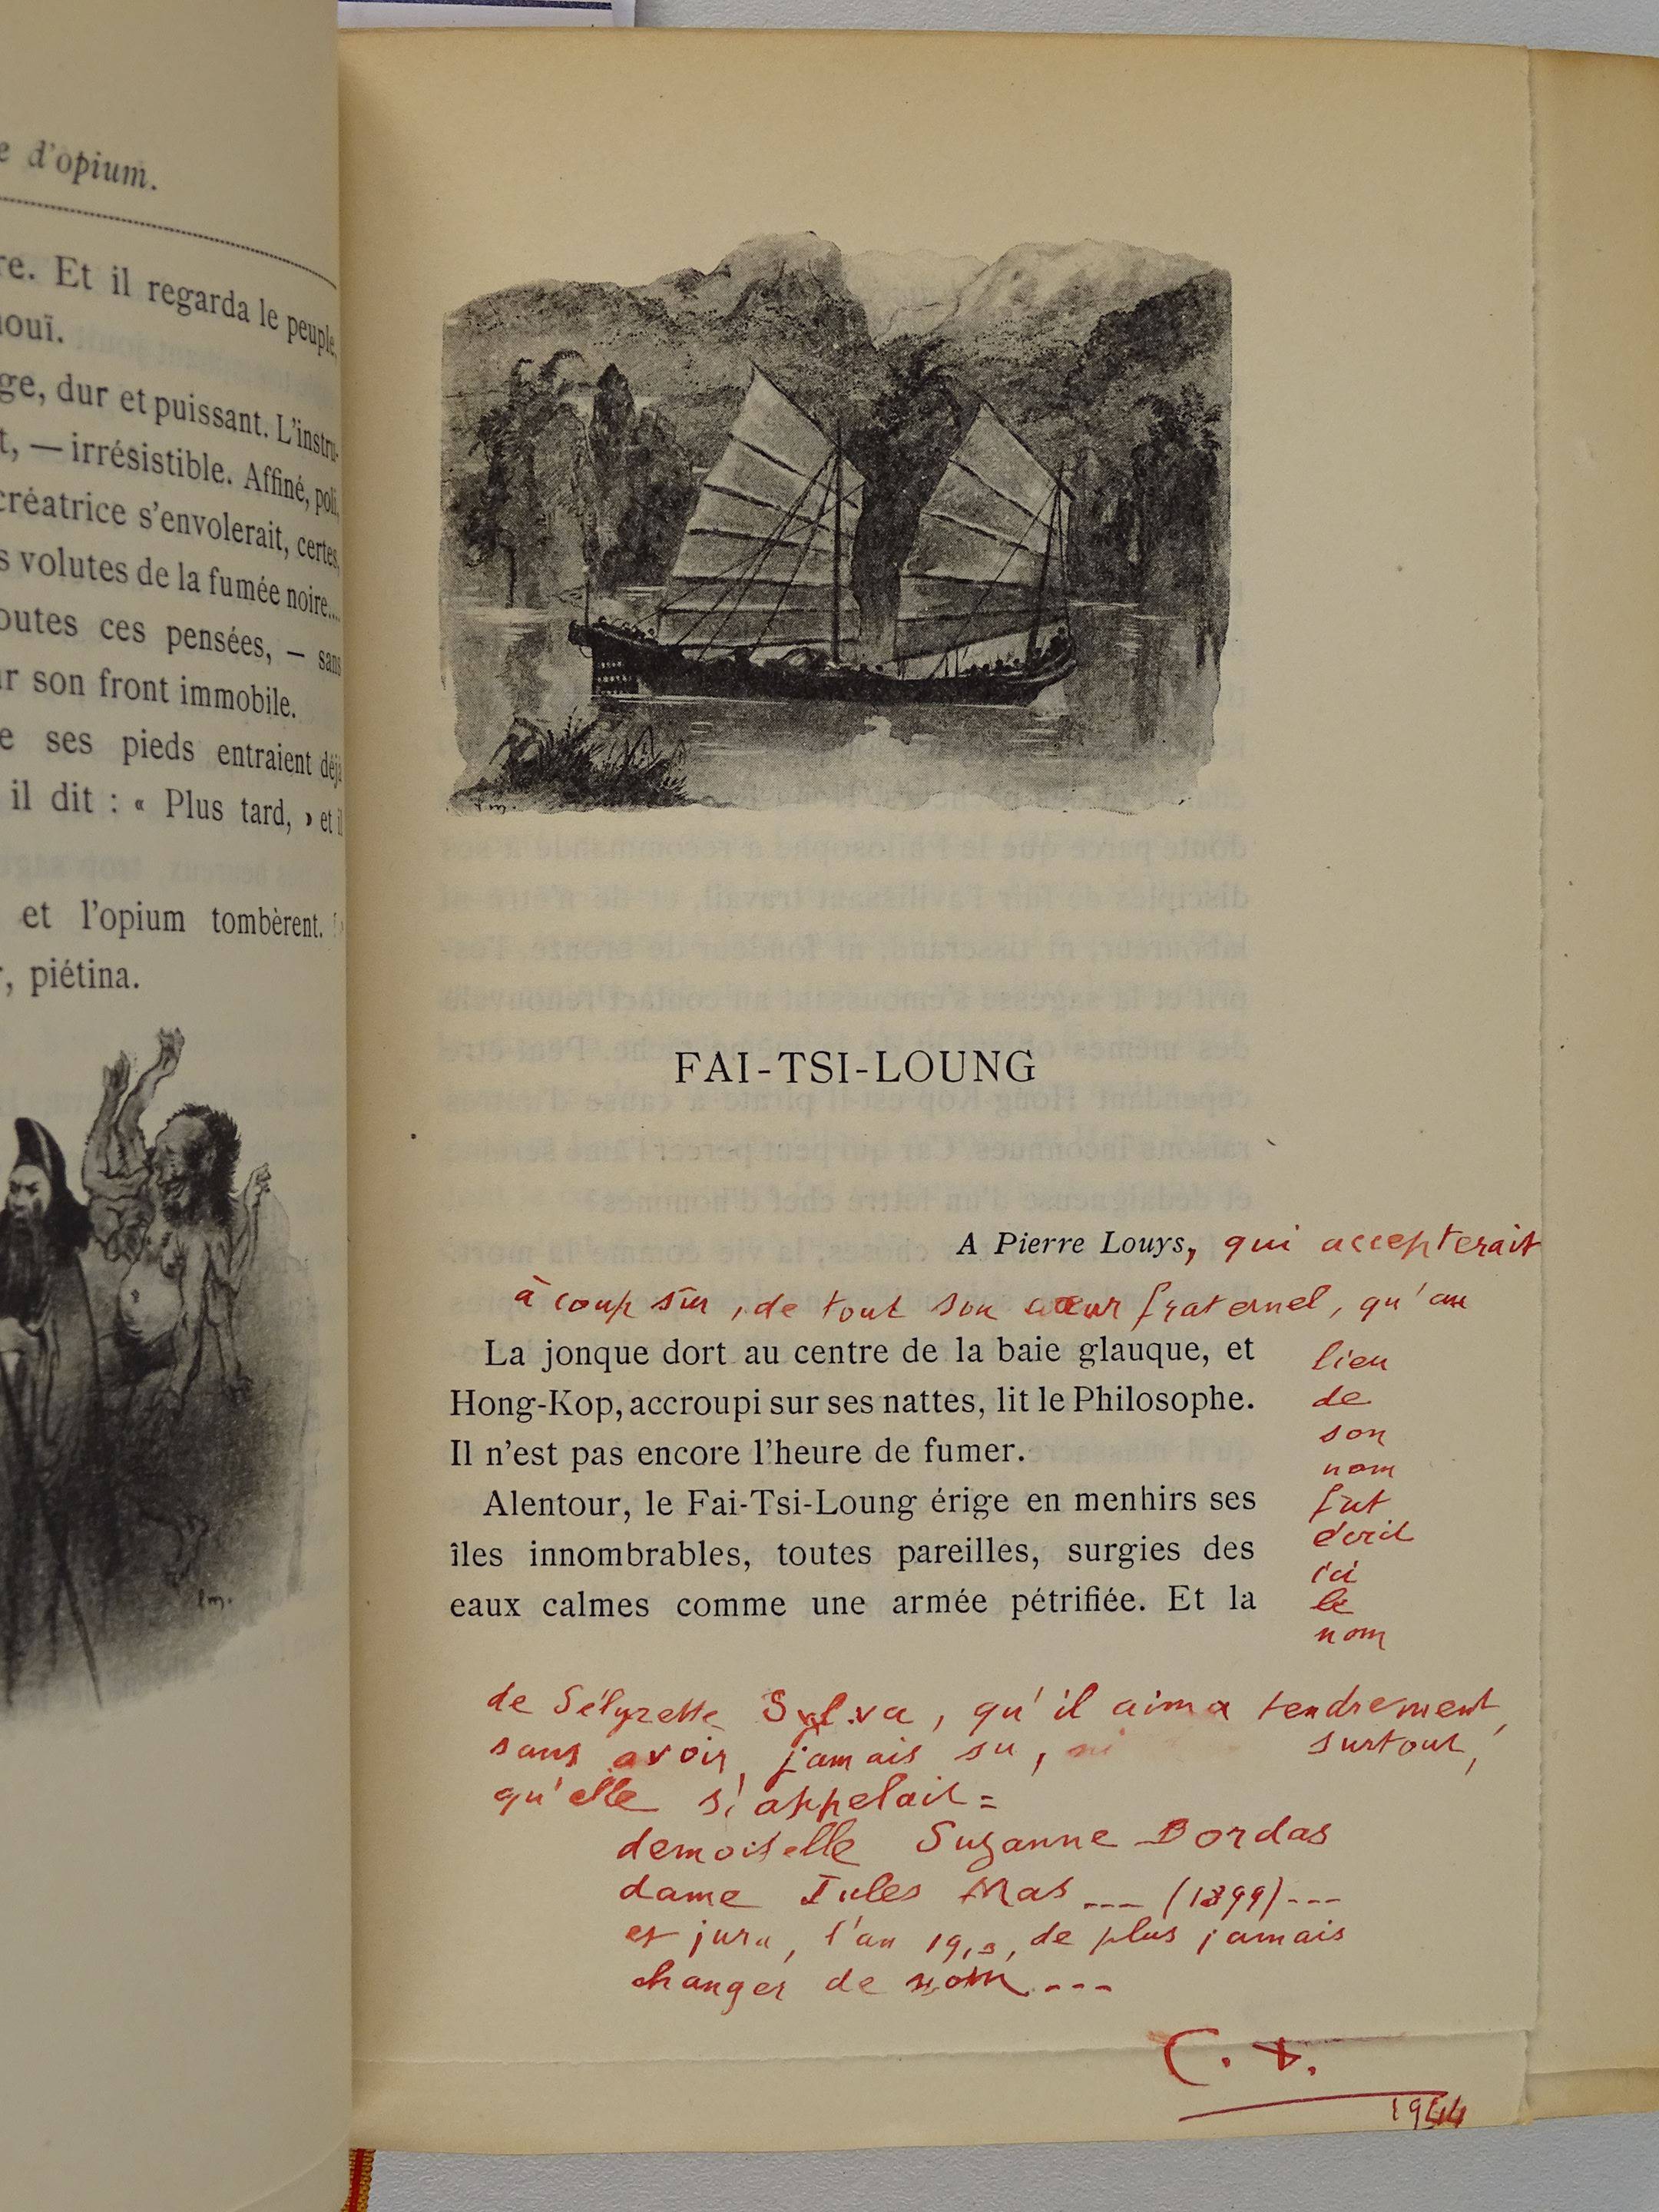 e d'opium.
re. Et il regarda le peuple,
nouï.
ge, dur et puissant. L'instru-
t, — irrésistible. Affiné, poli,
créatrice s'envolerait, certes,
s volutes de la fumée noire...
outes ces pensées, — sans
ur son front immobile.
e ses pieds entraient déjà
il dit : « Plus tard, » et il
et l'opium tombèrent.
r, piétina.
lm.
lm.
FAI-TSI-LOUNG
A Pierre Louys, qui accepterait
à coup sûr, de tout son cœur fraternel, qu'au
lieu
de
son
nom
fût
écrit
ici
le
nom
La jonque dort au centre de la baie glauque, et
Hong-Kop, accroupi sur ses nattes, lit le Philosophe.
Il n'est pas encore l'heure de fumer.
Alentour, le Fai-Tsi-Loung érige en menhirs ses
îles innombrables, toutes pareilles, surgies des
eaux calmes comme une armée pétrifiée. Et la
de Sélyzette Sylva, qu'il aima tendrement,
sans avoir jamais su, surtout,
qu'elle s'appelait =
demoiselle Suzanne Bordas
dame Jules Mas --- (1899) ---
et jura, l'an de plus jamais
changer de nom ---
1944